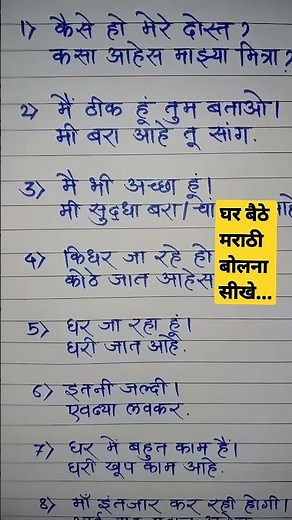 1) कैसे हो मेरे दोस्त ?
कसा आहेस माझ्या मित्रा ?
2) मैं ठीक हूं तुम बताओ।
मी बरा आहे तू सांग.
3) मै भी अच्छा हूं।
मी सुद्धा बरा/
4) किधर जा रहे हो
कोठे जात आहेस
घर बैठे
मराठी
बोलना
सीखे...
5) घर जा रहा हूं।
घरी जात आहे.
6) इतनी जल्दी।
एवढ्या लवकर.
7) घर में बहुत काम हैं।
घरी खूप काम आहे.
8) माँ इंतजार कर रही होगी।